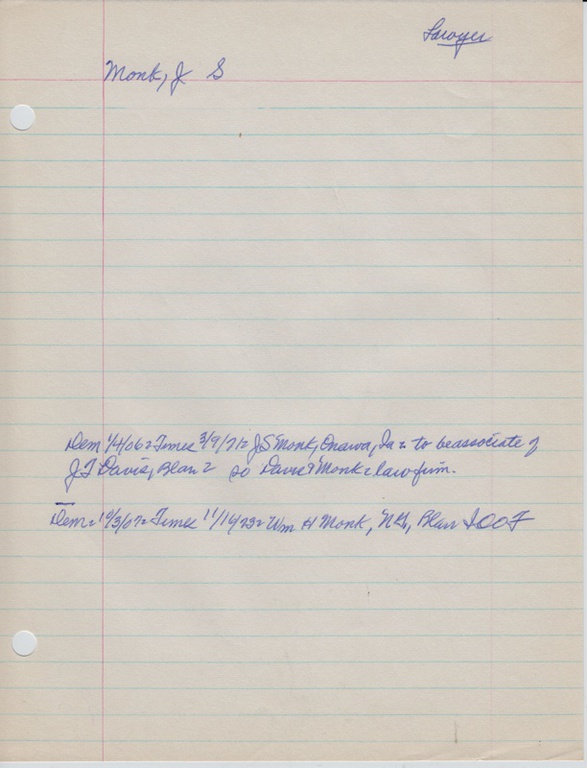 Lawyer
Monk, J S
Dem 1/4/06 = Times 3/9/72 = J S Monk, Onawa, Ia = to be associate of
J F Davis, Blair = so Davis & Monk = law firm.
Dem = 10/3/07 = Times = Wm H Monk, NG, Blair IOOF